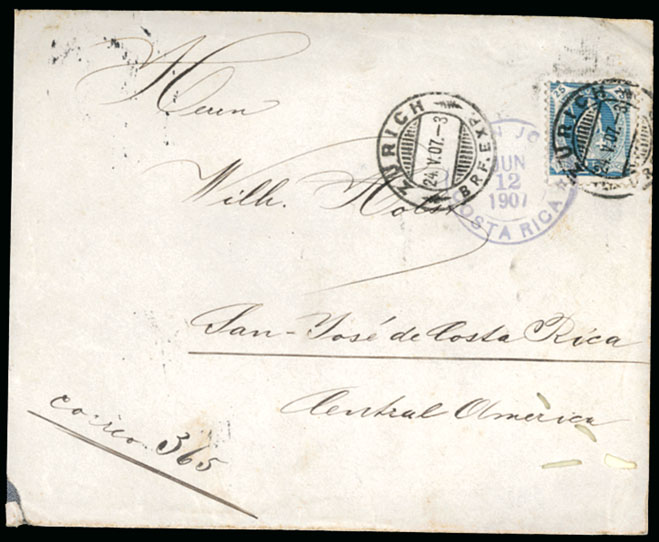 Herrn
Wilh.
San-José de Costa Rica
Central America
correo 365
ZÜRICH
24.V.07.-3
BRF. EXP.
JUN
12
1907
COSTA RICA
25
ZÜRICH
24.V.07.